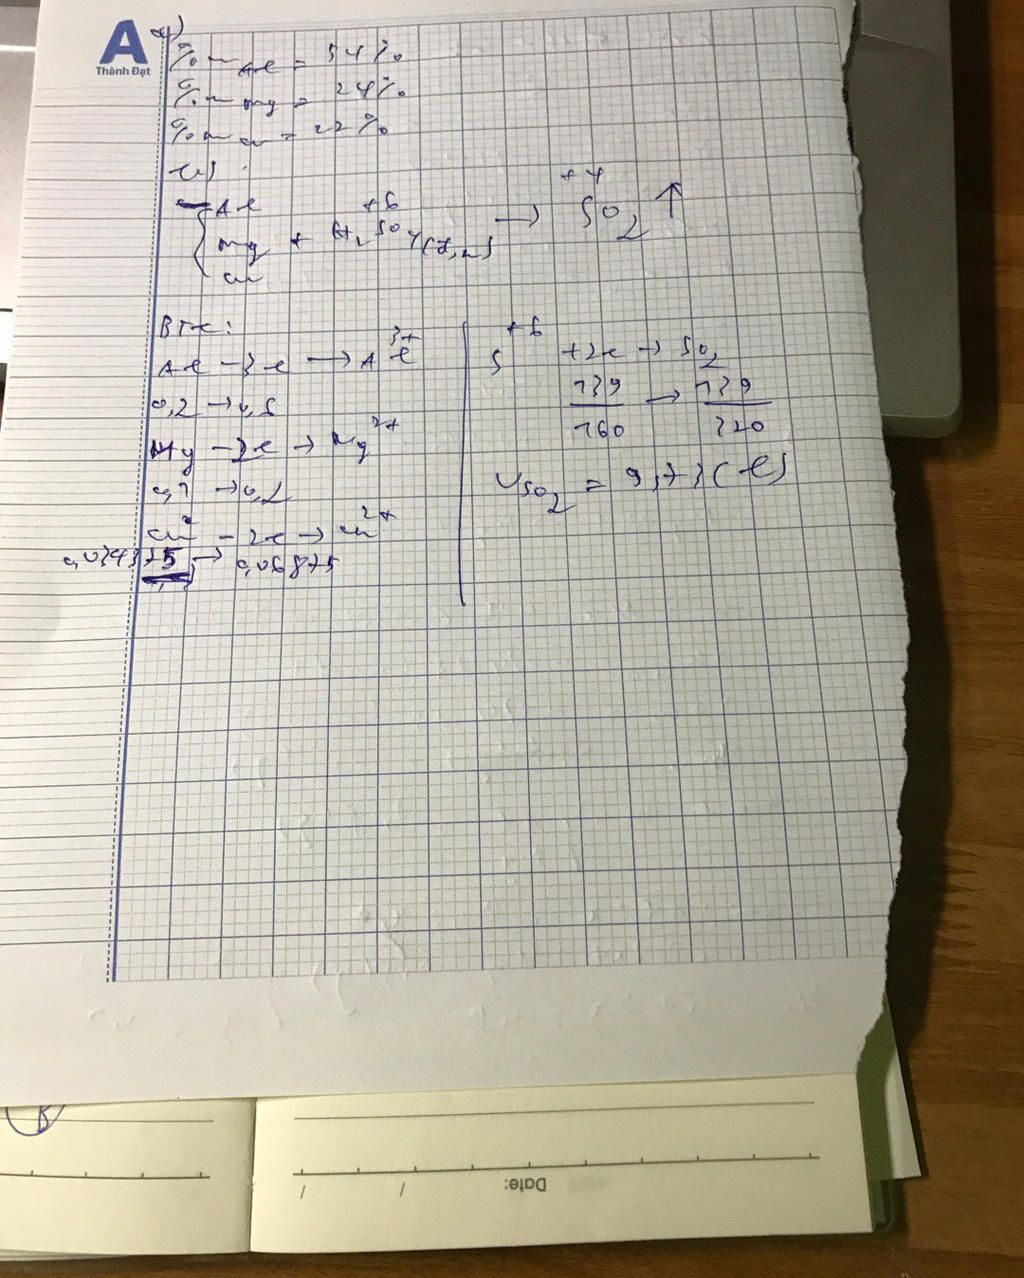 A
Thành Đạt
a)
%m Al = 54%
%m Mg = 24%
%m Cu = 22%
b)
Al
Mg + H₂S⁺⁶O₄(đ,n) → S⁺⁴O₂ ↑
Cu
BTe:
Al - 3e → Al³⁺
0,2 → 0,6
Mg - 2e → Mg²⁺
0,1 → 0,2
Cu - 2e → Cu²⁺
0,034375 → 0,06875
S⁺⁶ + 2e → SO₂
139/160 → 139/320
V SO₂ = 9,73 (l)
Date:
/ /